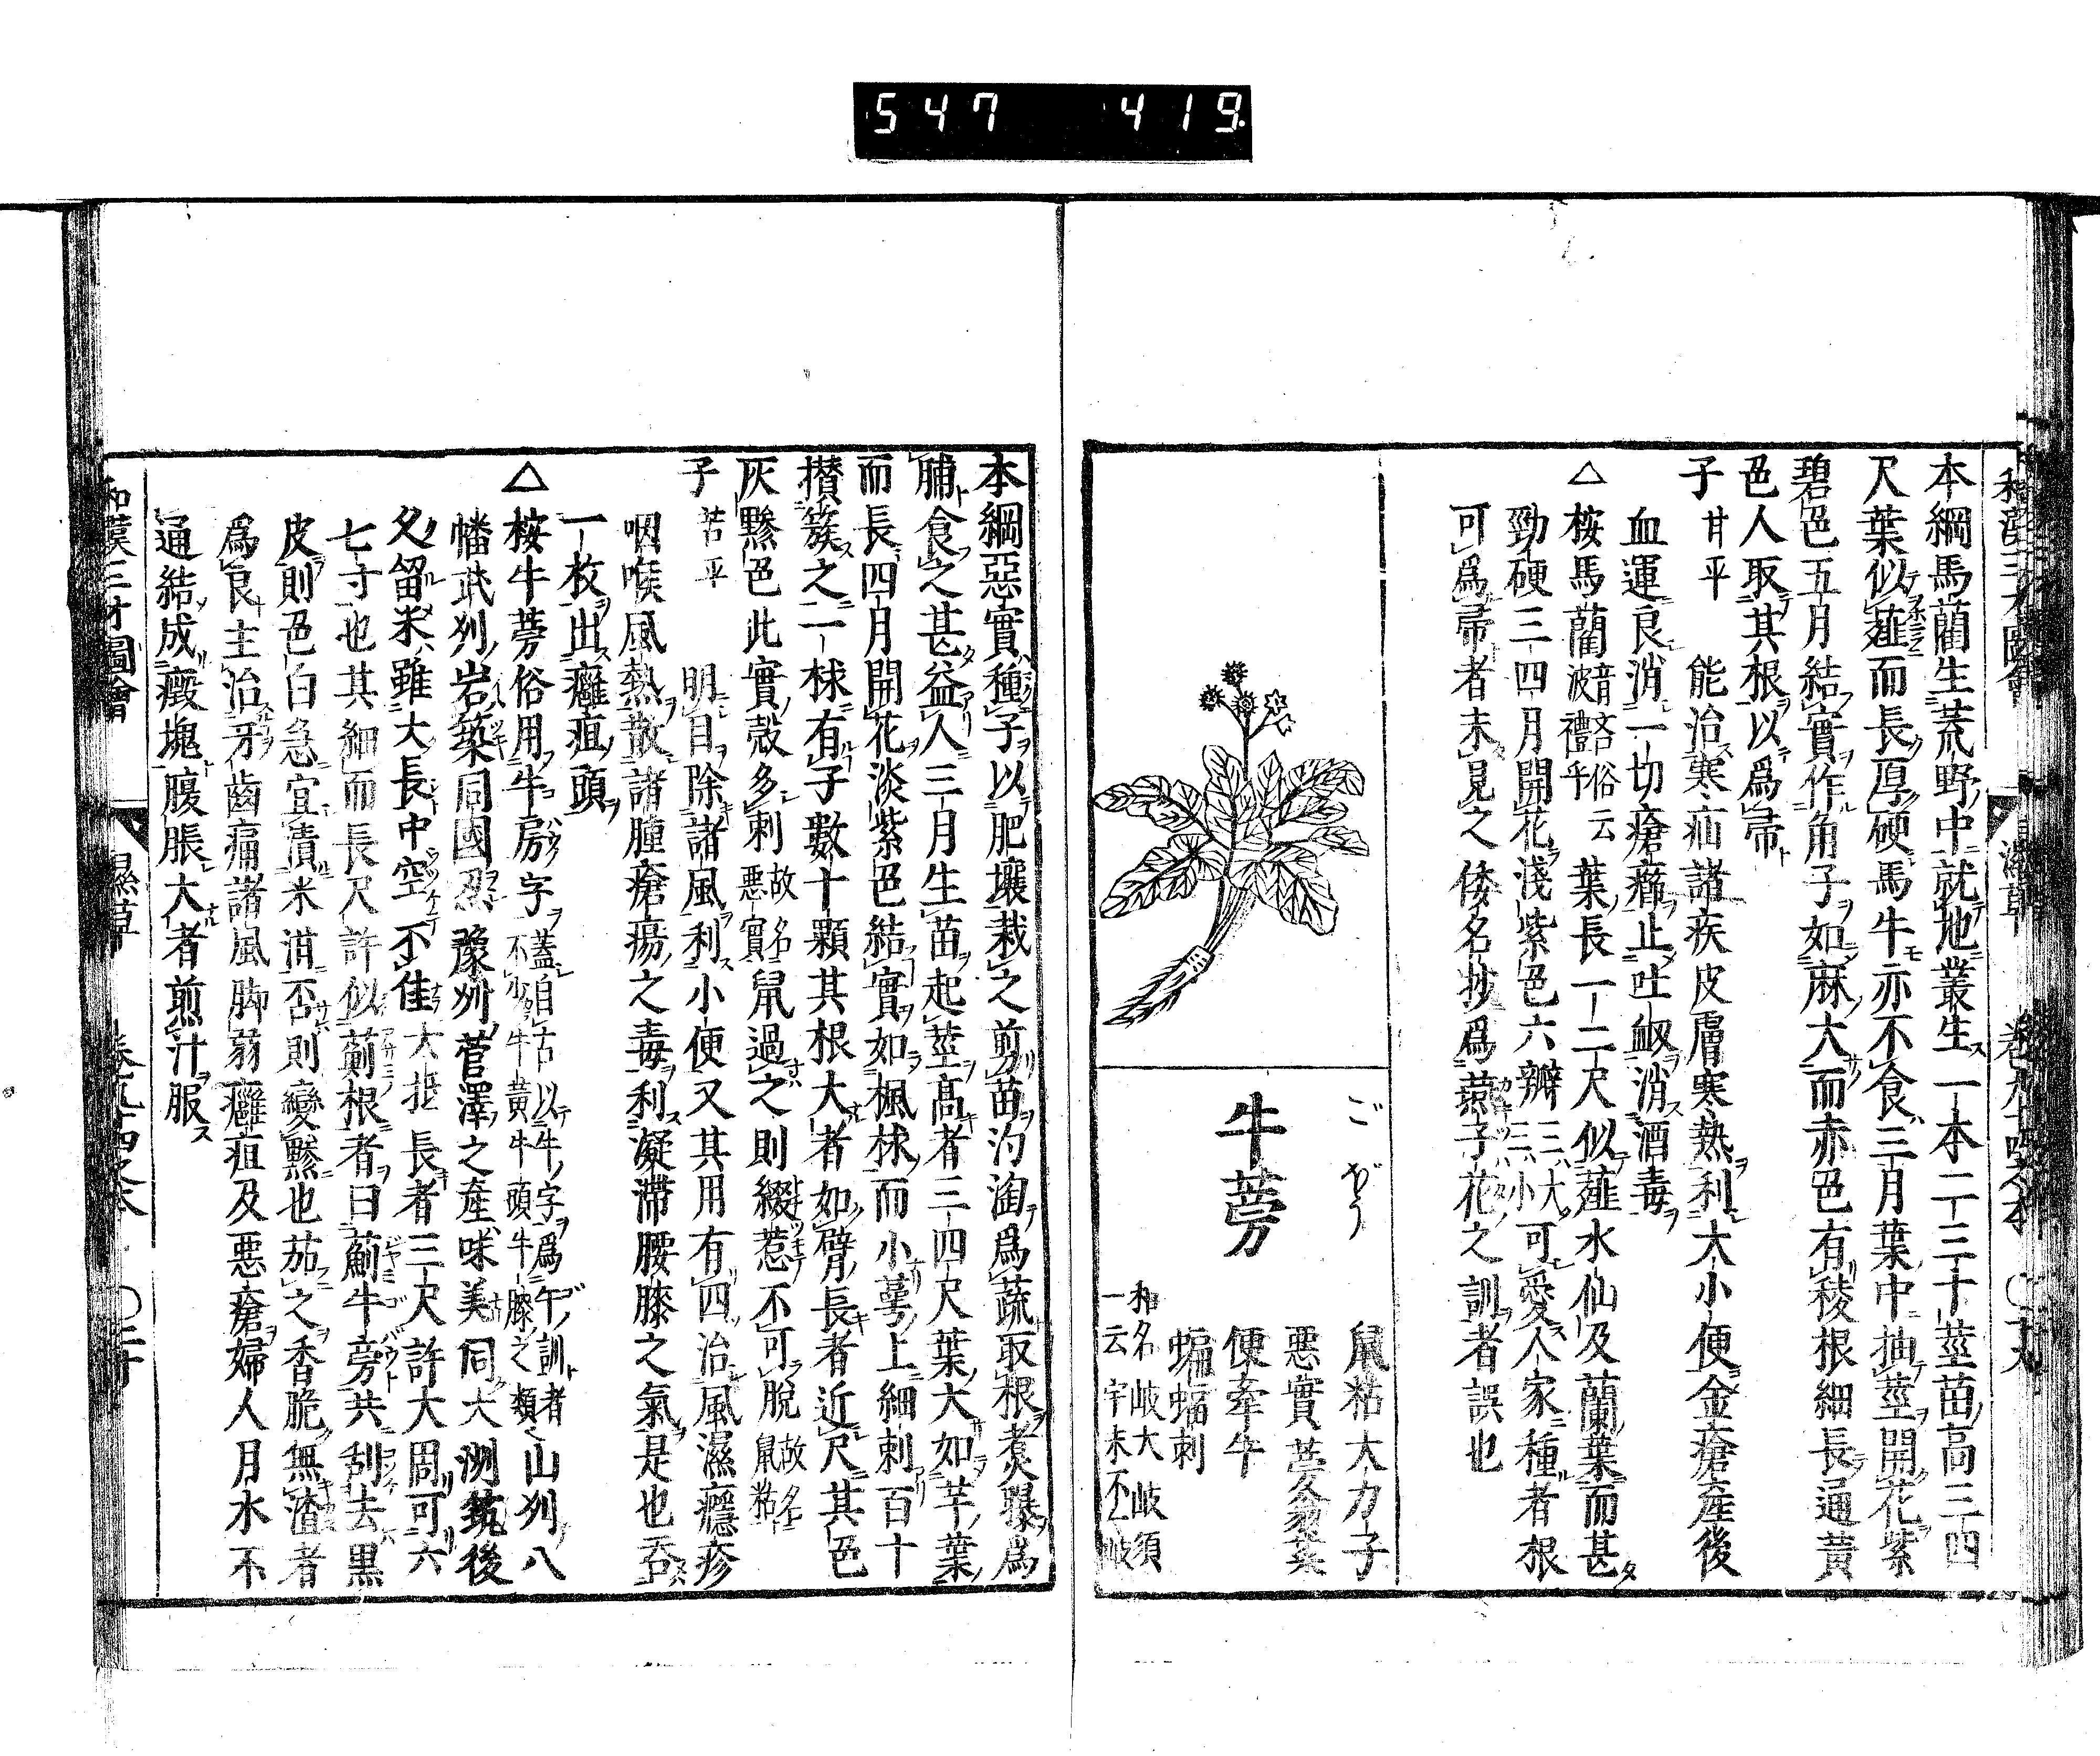 547 419
和漢三才圖會 濕草 卷九十四之本 〇十九
本綱馬藺生荒野中就地叢生一本二三十莖苗高三四
尺葉似薤而長厚硬馬牛亦不食三月葉中抽莖開花紫
碧色五月結實作角子如麻大而赤色有稜根細長通黃
色人取其根以爲帚
子 甘平 能治寒疝諸疾皮膚寒熱利大小便金瘡產後
血運良消一切瘡癤止吐衂消酒毒
△桉馬藺 音吝俗云波禮乎 葉長一二尺似薤水仙及蘭葉而甚
勁硬三四月開花淺紫色六瓣三大三小可愛人家種者根
可爲帚者未見之倭名抄爲燕子花之訓者誤也
ごばう
牛蒡
鼠粘 大力子
惡實 蒡翁菜
便牽牛
蝙蝠刺
和名 岐大岐須
一云 宇末不不岐
本綱惡實種子以肥壤栽之剪苗汋淘爲蔬取根煑曝爲
脯食之甚益人三月生苗起莖高者三四尺葉大如芋葉
而長四月開花淡紫色結實如楓梂而小蕚上細刺百十
攅簇之一梂有子數十顆其根大者如臂長者近尺其色
灰黲色此實殼多刺 故名惡實 鼠過之則綴惹不可脫 故名鼠粘
子 苦平 明目除諸風利小便又其用有四治風濕癮疹
咽喉風熱散諸腫瘡瘍之毒利凝滯腰膝之氣是也吞
一枚出癰疽頭
△桉牛蒡俗用牛房字 蓋自古以牛字爲午訓者不少牛黃牛頭牛膝之類 山刕八
幡武刕岩築同國忍豫州菅澤之產味美同大渕筑後
久留米雖大長中空不佳大抵長者三尺許大周可六
七寸也其細而長尺許似薊根者曰薊牛旁共刮去黑
皮則色白急宜漬米泔否則變黲也茹之香脆無渣者
爲良主治牙齒痛諸風脚蒻癰疽及惡瘡婦人月水不
通結成癥塊腹脹大者煎汁服
和漢三才圖會 濕草 卷九十四之本 〇二十